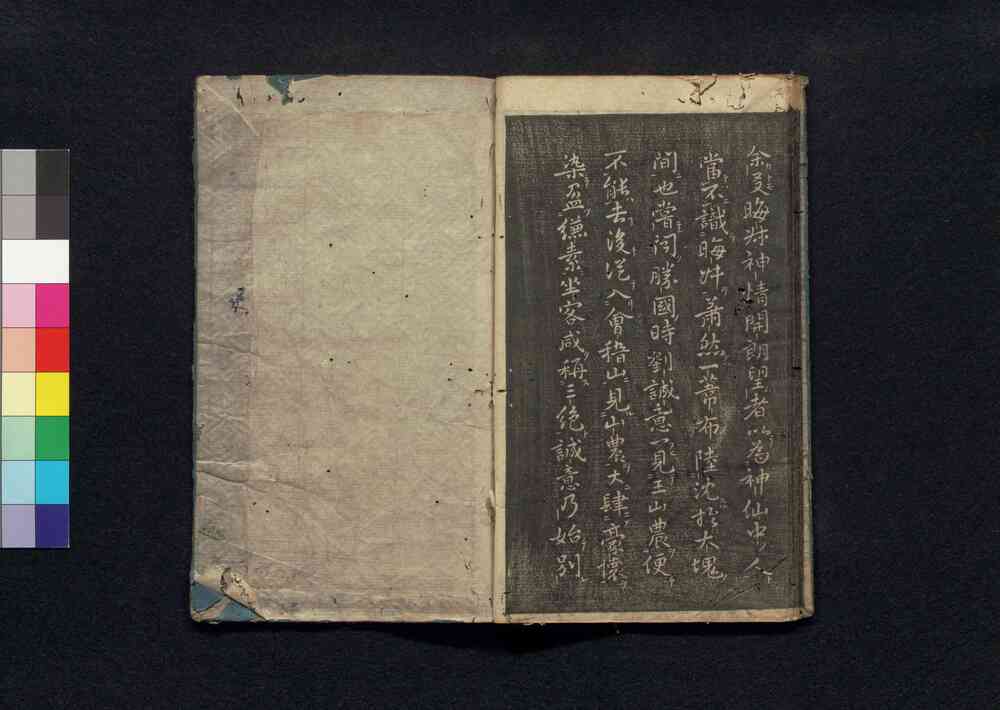 余友晦叔神情開朗望者以為神仙中人
當不識晦叔蕭然一葦布陸沈於大塊
間也嘗聞勝國時劉誠意一見王山農便
不能去後從入會稽山見山農大肆畫懷
染盈縑素坐客咸稱三絶誠意乃始別